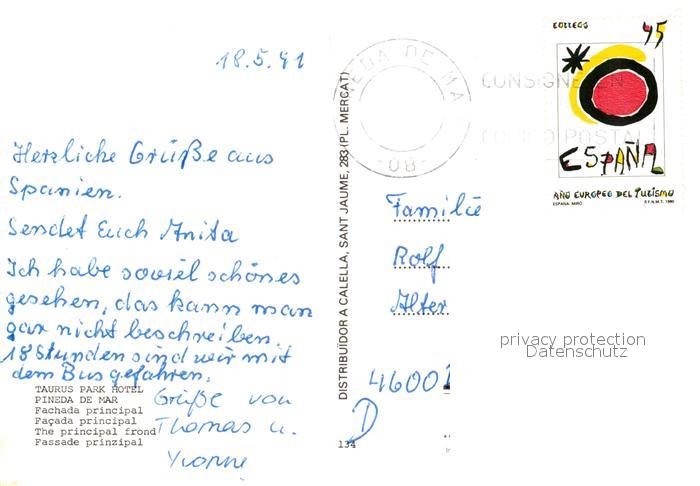 18.5.91
Herzliche Grüße aus
Spanien.
Sendet Euch Anita
Ich habe soviel schönes
gesehen, das kann man
gar nicht beschreiben.
18 Stunden sind wir mit
dem Bus gefahren.
Grüße von
Thomas u.
Yvonne
TAURUS PARK HOTEL
PINEDA DE MAR
Fachada principal
Façada principal
The principal frond
Fassade prinzipal
DISTRIBUÏDOR A CALELLA, SANT JAUME, 283 (PL. MERCAT)
134
PINEDA DE MA
08
CONSIGNE EN
CODIGO POSTAL
CORREOS
45
ESPAÑA
AÑO EUROPEO DEL TURISMO
ESPAÑA. MIRO
F.N.M.T. 1990
Familie
Rolf
Alter
46001
D
privacy protection
Datenschutz